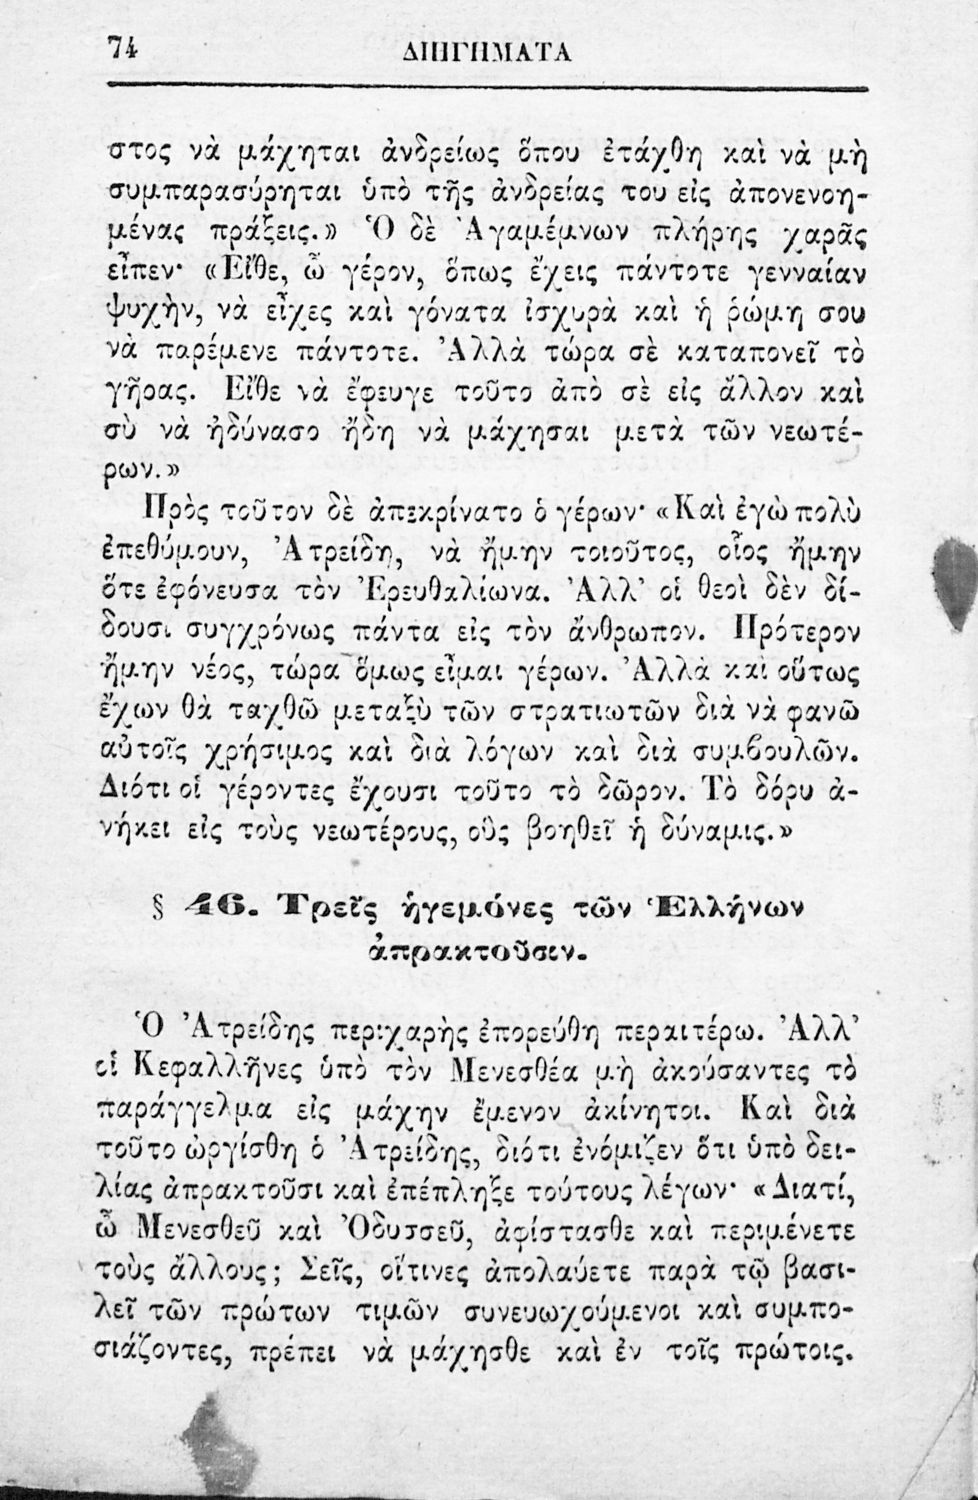 74 ΔΙΗΓΗΜΑΤΑ
στος νὰ μάχηται ἀνδρείως ὅπου ἐτάχθη καὶ νὰ μὴ
συμπαρασύρηται ὑπὸ τῆς ἀνδρείας του εἰς ἀπονενοη-
μένας πράξεις.» Ὁ δὲ Ἀγαμέμνων πλήρης χαρᾶς
εἶπεν· «Εἴθε, ὦ γέρον, ὅπως ἔχεις πάντοτε γενναίαν
ψυχὴν, νὰ εἶχες καὶ γόνατα ἰσχυρὰ καὶ ἡ ῥώμη σου
νὰ παρέμενε πάντοτε. Ἀλλὰ τώρα σὲ καταπονεῖ τὸ
γῆρας. Εἴθε νὰ ἔφευγε τοῦτο ἀπὸ σὲ εἰς ἄλλον καὶ
σὺ νὰ ἠδύνασο ἤδη νὰ μάχησαι μετὰ τῶν νεωτέ-
ρων.»
Πρὸς τοῦτον δὲ ἀπεκρίνατο ὁ γέρων· «Καὶ ἐγὼ πολὺ
ἐπεθύμουν, Ἀτρείδη, νὰ ἤμην τοιοῦτος, οἷος ἤμην
ὅτε ἐφόνευσα τὸν Ἐρευθαλίωνα. Ἀλλ’ οἱ θεοὶ δὲν δί-
δουσι συγχρόνως πάντα εἰς τὸν ἄνθρωπον. Πρότερον
ἤμην νέος, τώρα ὅμως εἶμαι γέρων. Ἀλλὰ καὶ οὕτως
ἔχων θὰ ταχθῶ μεταξὺ τῶν στρατιωτῶν διὰ νὰ φανῶ
αὐτοῖς χρήσιμος καὶ διὰ λόγων καὶ διὰ συμβουλῶν.
Διότι οἱ γέροντες ἔχουσι τοῦτο τὸ δῶρον. Τὸ δόρυ ἀ-
νήκει εἰς τοὺς νεωτέρους, οὓς βοηθεῖ ἡ δύναμις.»
§ 46. Τρεῖς ἡγεμόνες τῶν Ἑλλήνων
ἀπρακτοῦσιν.
Ὁ Ἀτρείδης περιχαρὴς ἐπορεύθη περαιτέρω. Ἀλλ’
οἱ Κεφαλλῆνες ὑπὸ τὸν Μενεσθέα μὴ ἀκούσαντες τὸ
παράγγελμα εἰς μάχην ἔμενον ἀκίνητοι. Καὶ διὰ
τοῦτο ὠργίσθη ὁ Ἀτρείδης, διότι ἐνόμιζεν ὅτι ὑπὸ δει-
λίας ἀπρακτοῦσι καὶ ἐπέπληξε τούτους λέγων· «Διατί,
ὦ Μενεσθεῦ καὶ Ὀδυσσεῦ, ἀφίστασθε καὶ περιμένετε
τοὺς ἄλλους; Σεῖς, οἵτινες ἀπολαύετε παρὰ τῷ βασι-
λεῖ τῶν πρώτων τιμῶν συνευωχούμενοι καὶ συμπο-
σιάζοντες, πρέπει νὰ μάχησθε καὶ ἐν τοῖς πρώτοις.